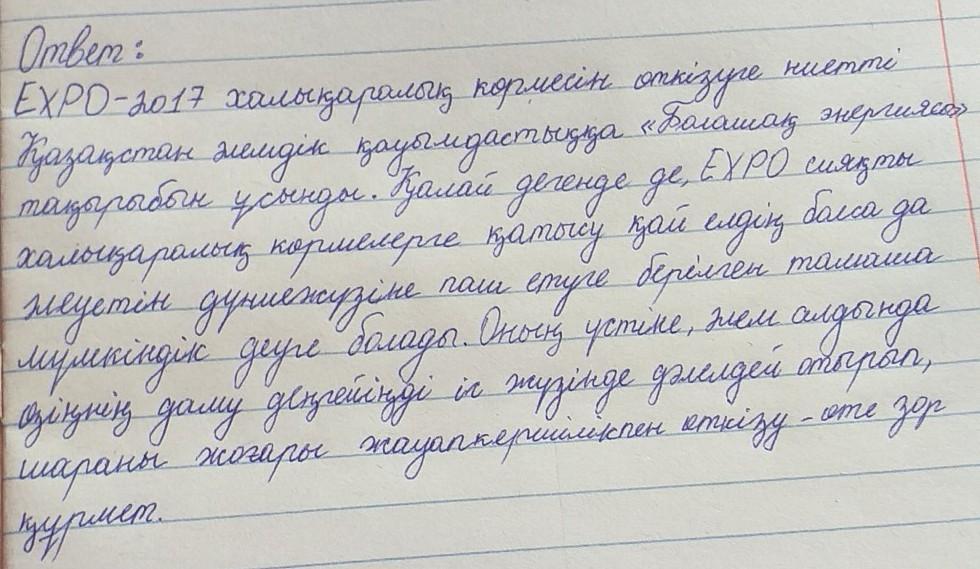 Ответ:
EXPO-2017 халықаралық көрмесін өткізуге ниетті
Қазақстан әлемдік қауымдастыққа «Болашақ энергиясы»
тақырыбын ұсынды. Қалай дегенде де, EXPO сияқты
халықаралық көрмелерге қатысу қай елдің болса да
әлеуетін дүниежүзіне паш етуге берілген тамаша
мүмкіндік деуге болады. Оның үстіне, әлем алдында
өзіңнің даму деңгейіңді іс жүзінде дәлелдей отырып,
шараны жоғары жауапкершілікпен өткізу - өте зор
құрмет.